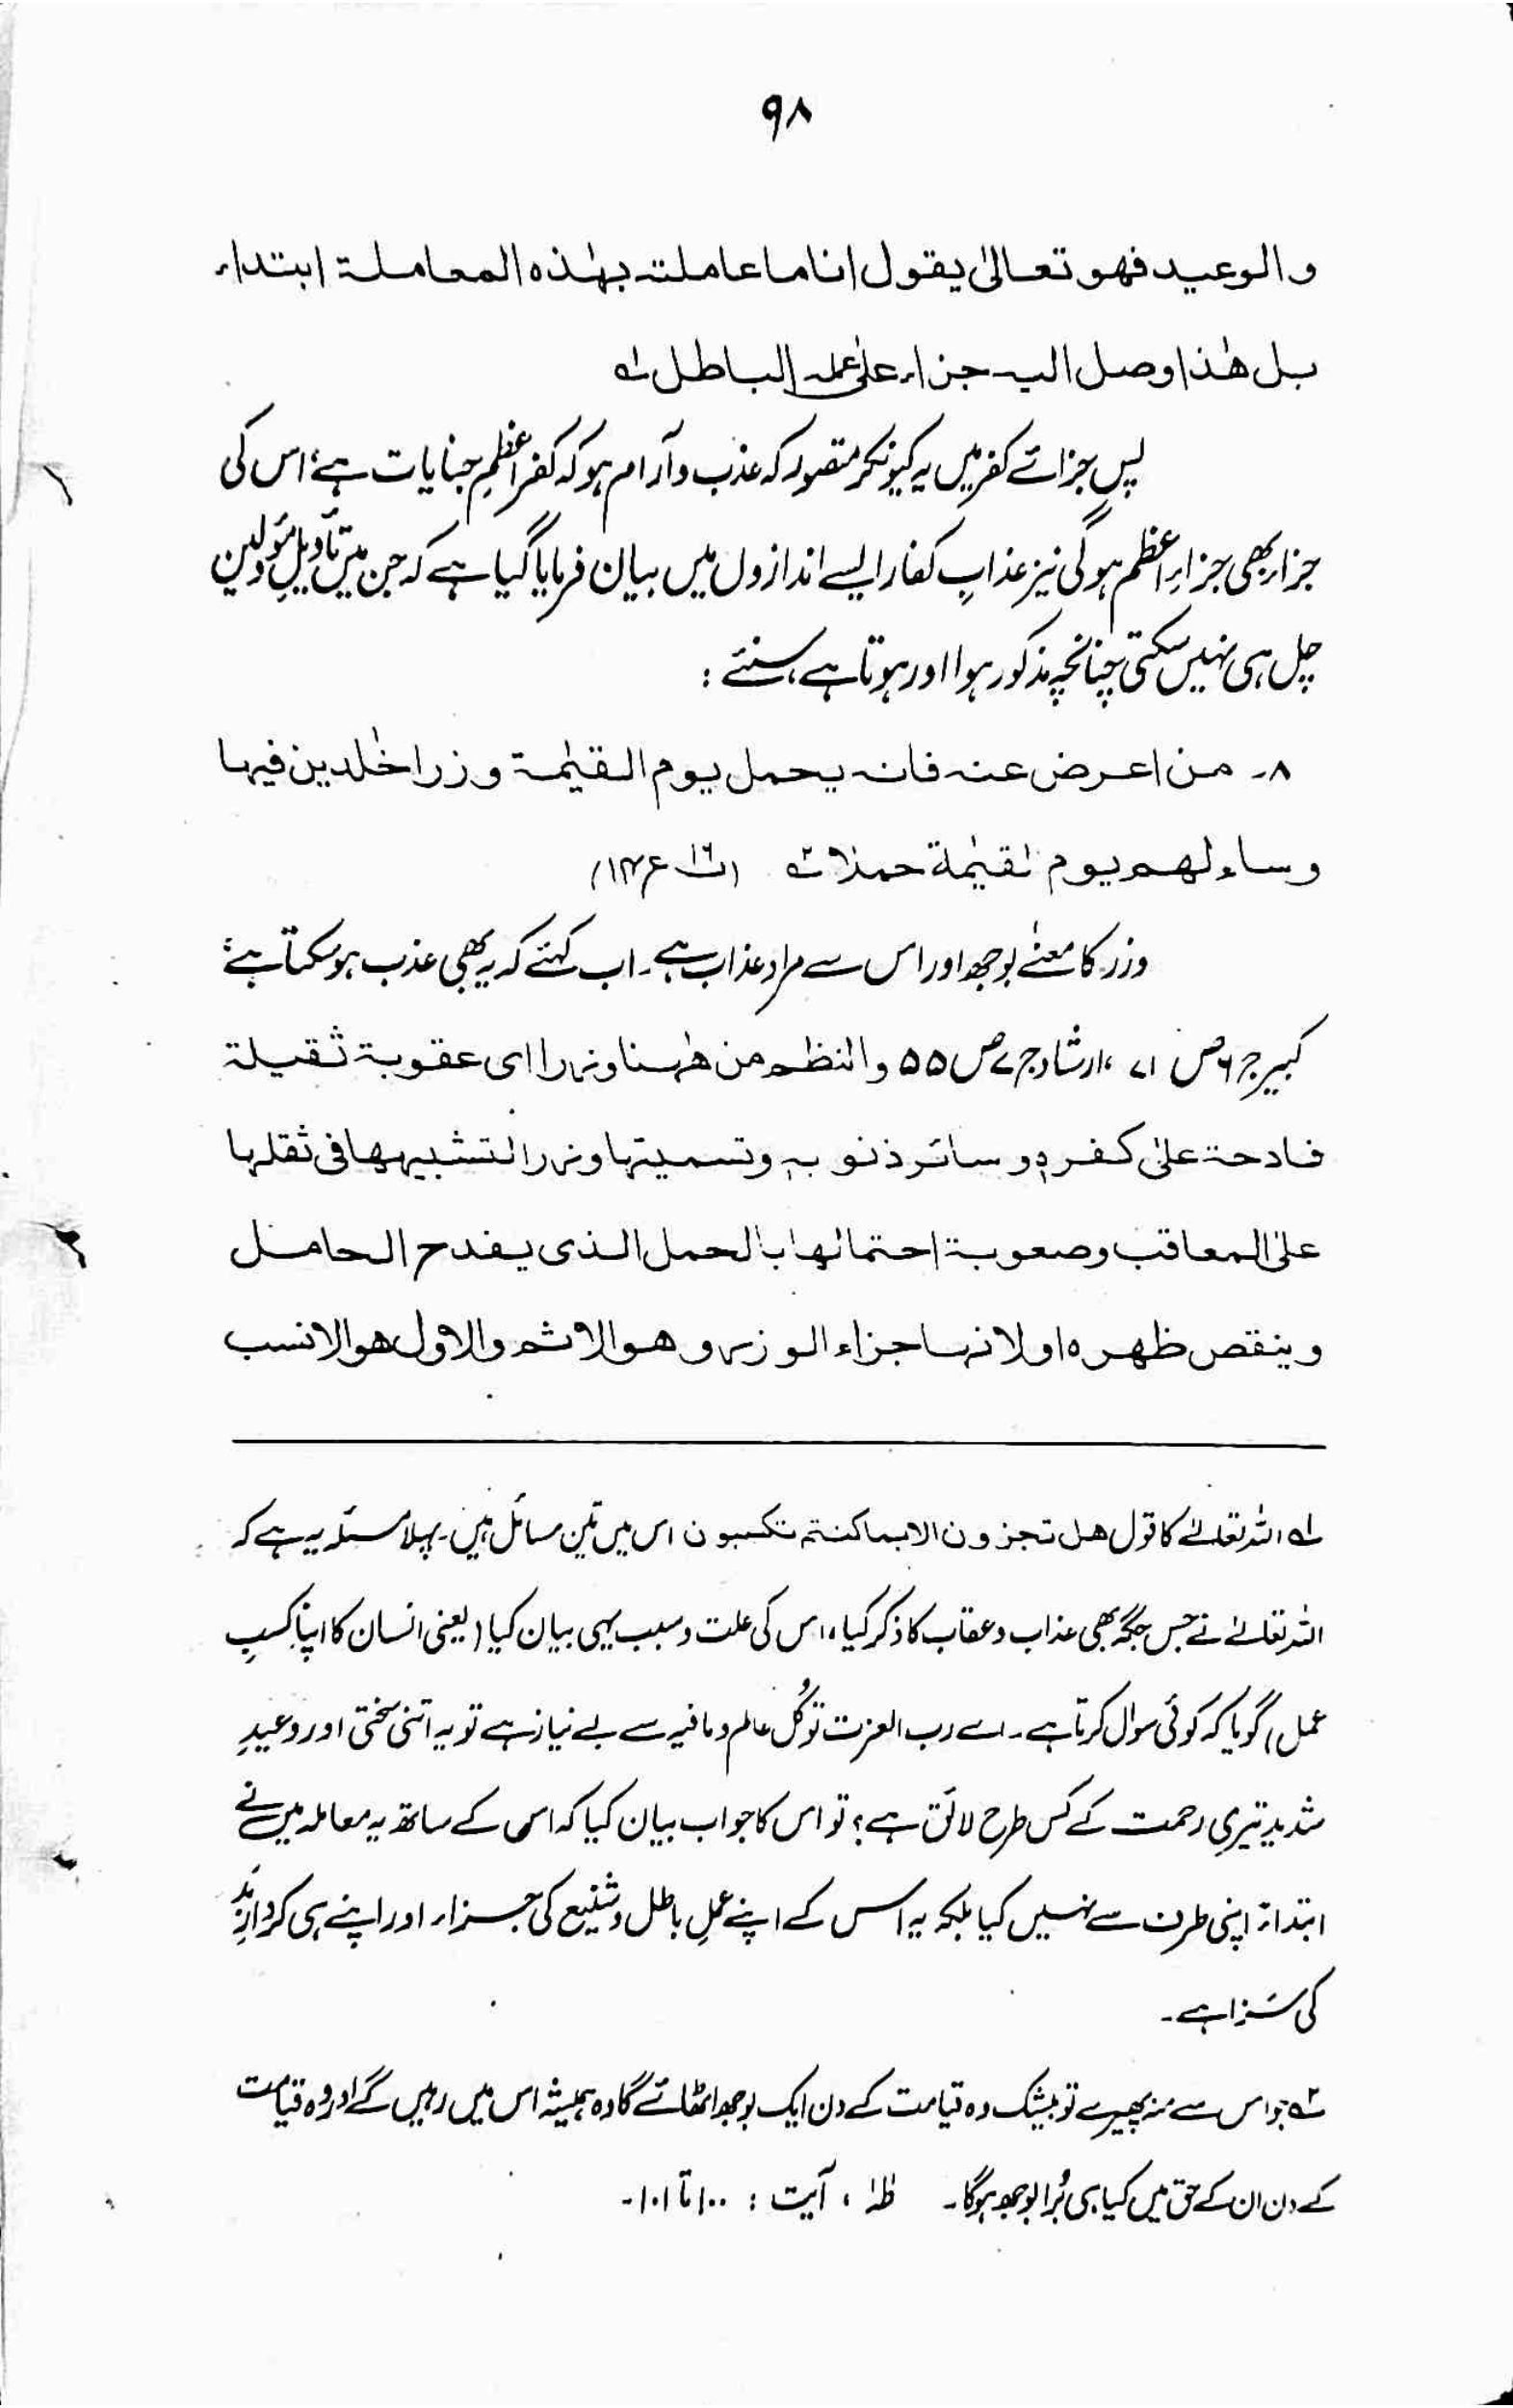 ۹۸
والوعید فھو تعالیٰ یقول انا ما عاملتہ بھٰذہ المعاملۃ ابتداء
بل ھٰذا وصل الیہ جزاء علیٰ عملہ الباطل لہ
پس جزائے کفر میں یہ کیونکر متصور کہ عذب و آرام ہو کہ کفر اعظمِ جنایات ہے، اس کی
جزاء بھی جزاءِ اعظم ہو گی نیز عذابِ کفار ایسے اندازوں میں بیان فرمایا گیا ہے کہ جن میں تأویلِ مؤولین
چل ہی نہیں سکتی چنانچہ مذکور ہوا اور ہوتا ہے، سنئے :
۸۔ من اعرض عنہ فانہ یحمل یوم القیٰمۃ وزرا خٰلدین فیہا
وساء لھم یوم القیٰمۃ حملا ۲ (پ ۱۶ ع ۱۴)
وزر کا معنےٰ بوجھ اور اس سے مراد عذاب ہے۔ اب کہئے کہ یہ بھی عذب ہو سکتا ہے؟
کبیر ج ۶ ص ۷۱ ، ارشاد ج ۷ ص ۵۵ والنظم من ھٰہنا وزرا ای عقوبۃ ثقیلۃ
فادحۃ علیٰ کفرہٖ و سائر ذنوبہٖ وتسمیتہا وزرا لتشبیہھا فی ثقلہا
علی المعاقب وصعوبۃ احتمالھا بالحمل الذی یفدح الحامل
وینقص ظھرہ او لانہا جزاء الوزر وھو الاثم والاول ھو الانسب
لہ اللہ تعالےٰ کا قول ھل تجزون الا بما کنتم تکسبون اس میں تین مسائل ہیں۔ پہلا مسئلہ یہ ہے کہ
اللہ تعالےٰ نے جس جگہ بھی عذاب و عقاب کا ذکر کیا، اس کی علت و سبب یہی بیان کیا (یعنی انسان کا اپنا کسبِ
عمل) گویا کہ کوئی سوال کرتا ہے۔ اے رب العزت تو کُل عالم و مافیہ سے بے نیاز ہے تو یہ اتنی سختی اور وعیدِ
شدید تیری رحمت کے کس طرح لائق ہے؟ تو اس کا جواب بیان کیا کہ اس کے ساتھ یہ معاملہ میں نے
ابتداءً اپنی طرف سے نہیں کیا بلکہ یہ اس کے اپنے عملِ باطل و شنیع کی جزاء اور اپنے ہی کردارِ بَد
کی سَزا ہے۔
۲ جو اس سے منہ پھیرے تو بیشک وہ قیامت کے دن ایک بوجھ اٹھائے گا وہ ہمیشہ اس میں رہیں گے اور وہ قیامت
کے دن ان کے حق میں کیا ہی بُرا بوجھ ہوگا۔ طٰہٰ ، آیت : ۱۰۰ تا ۱۰۱۔